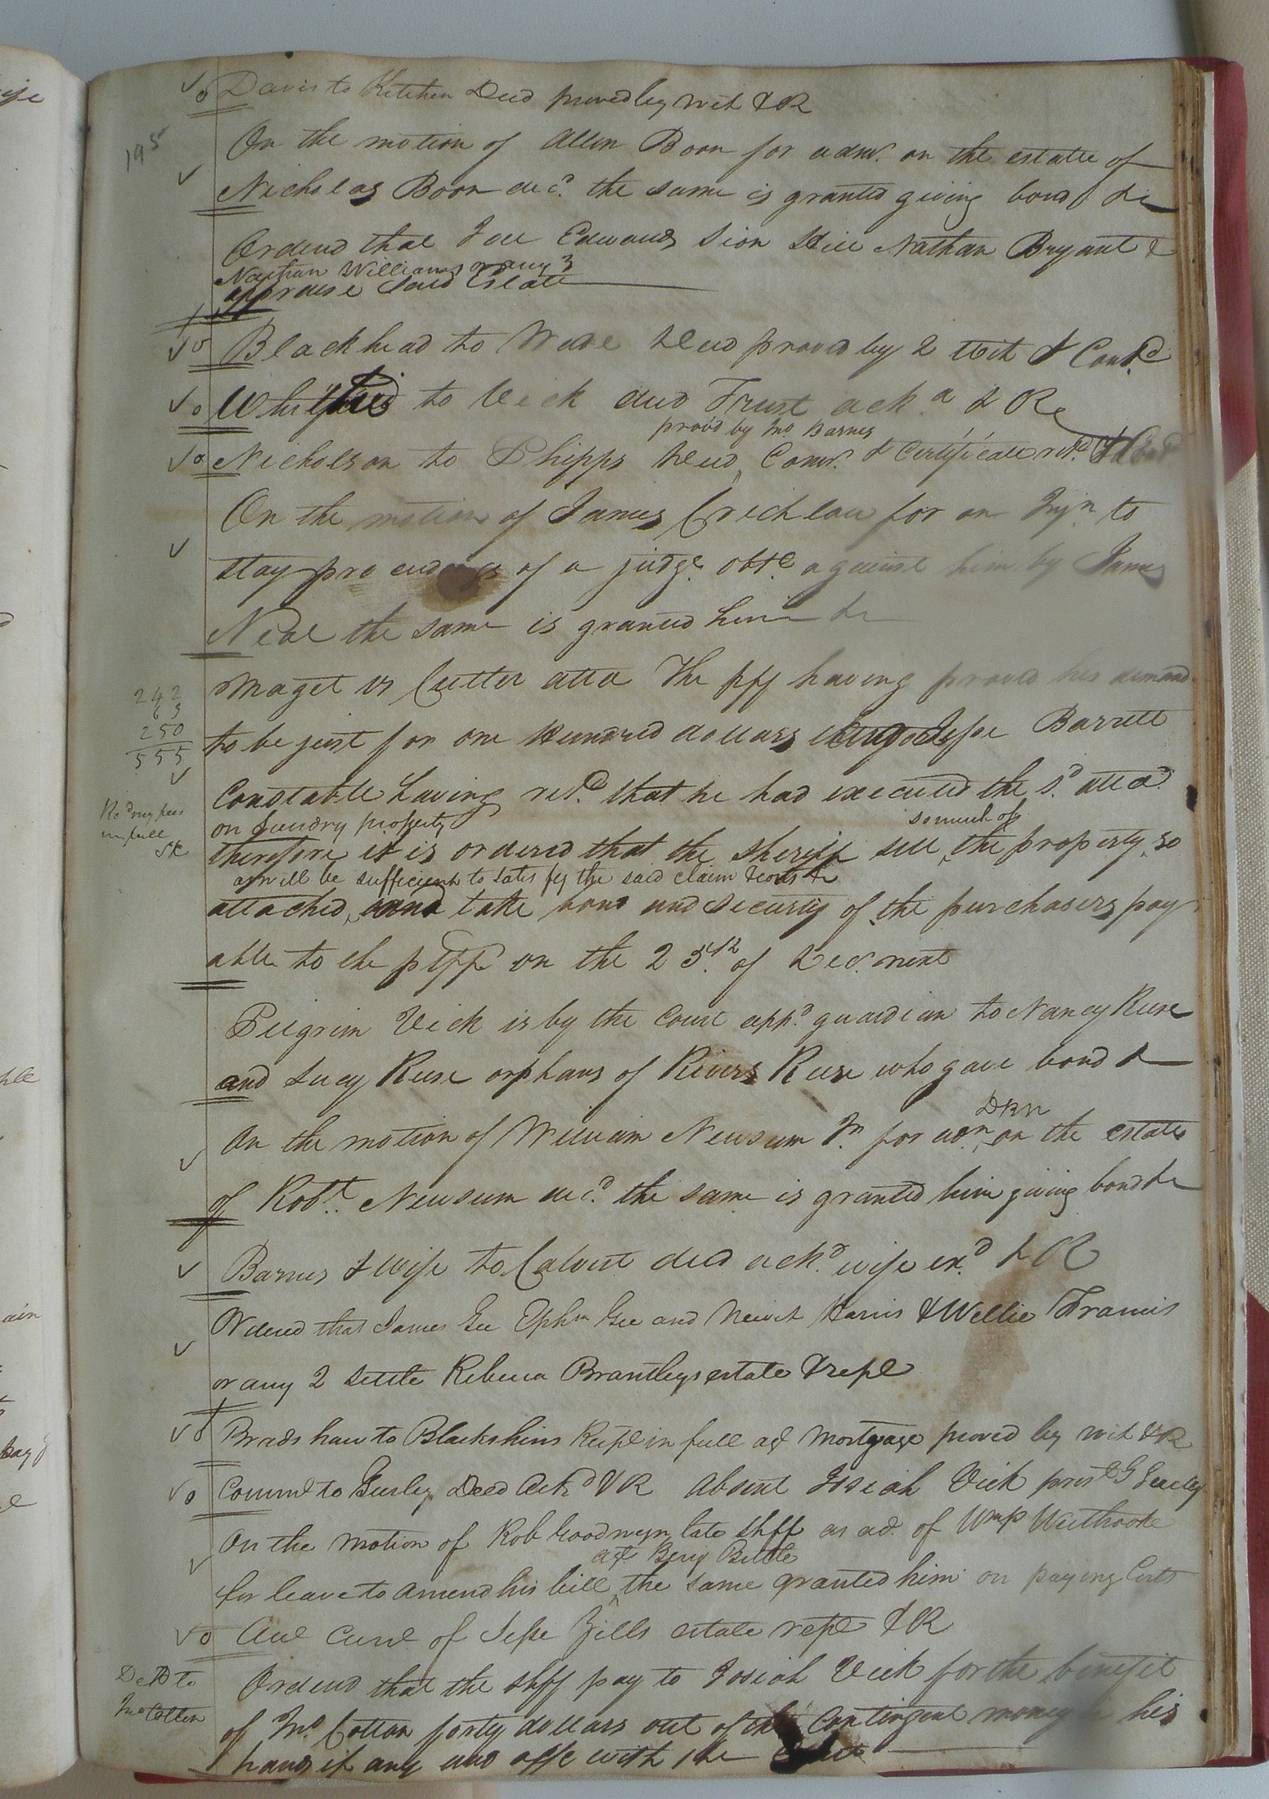 Davis to Kitchen Deed proved by wit & R
195
On the motion of Allen Boon for adm.r on the estate of
Nicholas Boon dec.d the same is granted giving bond &c
Ordered that Edwards Sion Hill Nathan Bryant &
Nathan Williams or any 3
appraise said Estate
Blackhead to Deed proved by 2 wit & Cont.d
to Vick deed Trust ack.d & R
prov'd by Jno Barnes
Nicholson to Phipps Deed Com.n & Certificate ret.d
On the motion of James Crichlow for an Inj.n to
stay proceedings of a judg.t obt.d against him by James
Neal the same is granted him &c
242
63
250
555
Maget vs Cutter atta The plff having proved his demand
to be just for one Hundred dollars Jesse Barrett
Constable having ret.d that he had executed the s.d atta.t
Re.d my fees
in full
SK
on sundry property so much of
therefore it is ordered that the sheriff sell the property so
as will be sufficient to satisfy the said claim & costs &c
attached, and take bond and security of the purchasers pay
able to the plff on the 25.th of Dec.r next
Pilgrim Vick is by the Court app.d guardian to Nancy Reese
and Lucy Reese orphans of Rivers Reese who gave bond &c
DBN
On the motion of William Newsum Jr. for ad.n on the estate
of Rob.t Newsum dec.d the same is granted him giving bond &c
Barnes & wife to Calvert deed ack.d wife ex.d & R
Ordered that James Gee Eph.m Gee and Newit Harris & Wellie Francis
or any 2 settle Rebecca Brantleys estate & repl
Bradshaw to Blackshins Recpt in full ag.t Mortgage proved by wit & R
Comm.l to Gurley Deed Ack.d & R Absent Josiah Vick pres.t G Gurley
On the motion of Rob Goodwyn late Shff as ad.r of Wm P Westbrook
agt Benj Bittle
for leave to amend his bill, the same granted him on paying Costs
Aud Curr of Jesse Zills estate repl & R
Ded to
Jno Cotten
Ordered that the shff pay to Josiah Vick for the benefit
of Jno Cotton forty dollars out of the contingent money in his
hands if any and offs with the